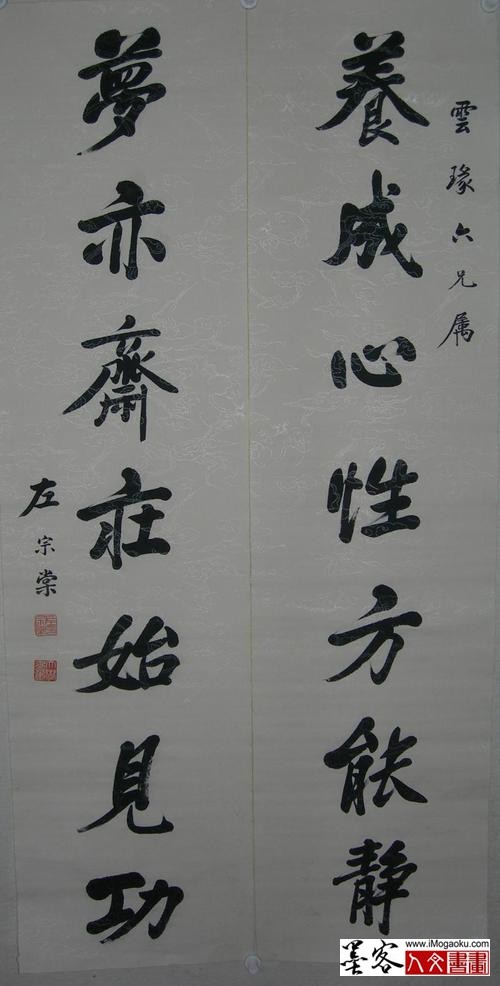 雲瑑六兄属
養成心性方能静
夢亦齋莊始見功
左宗棠
墨客
www.iMogaoku.com
人文書畫